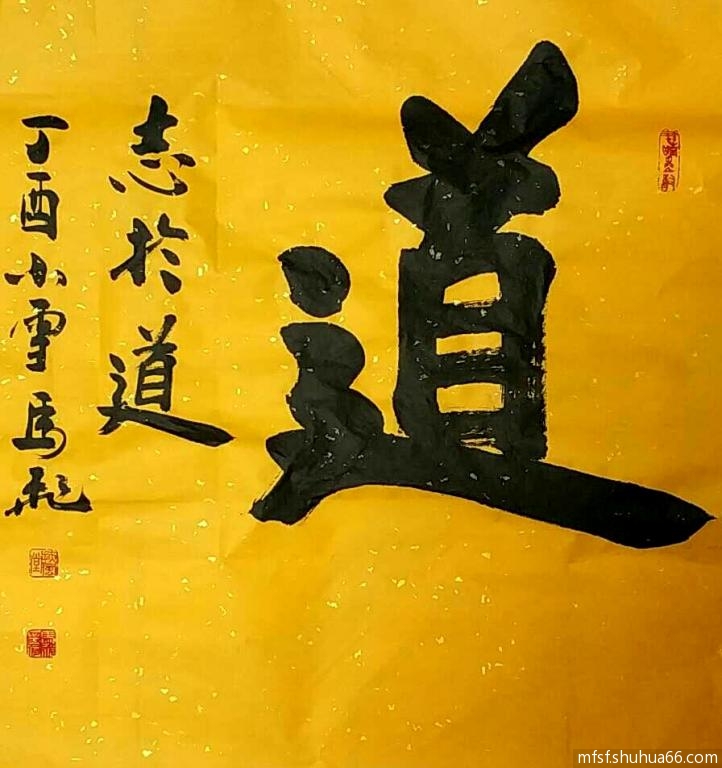 道
志於道
丁酉小雪马飛
mfsf.shuhua66.com